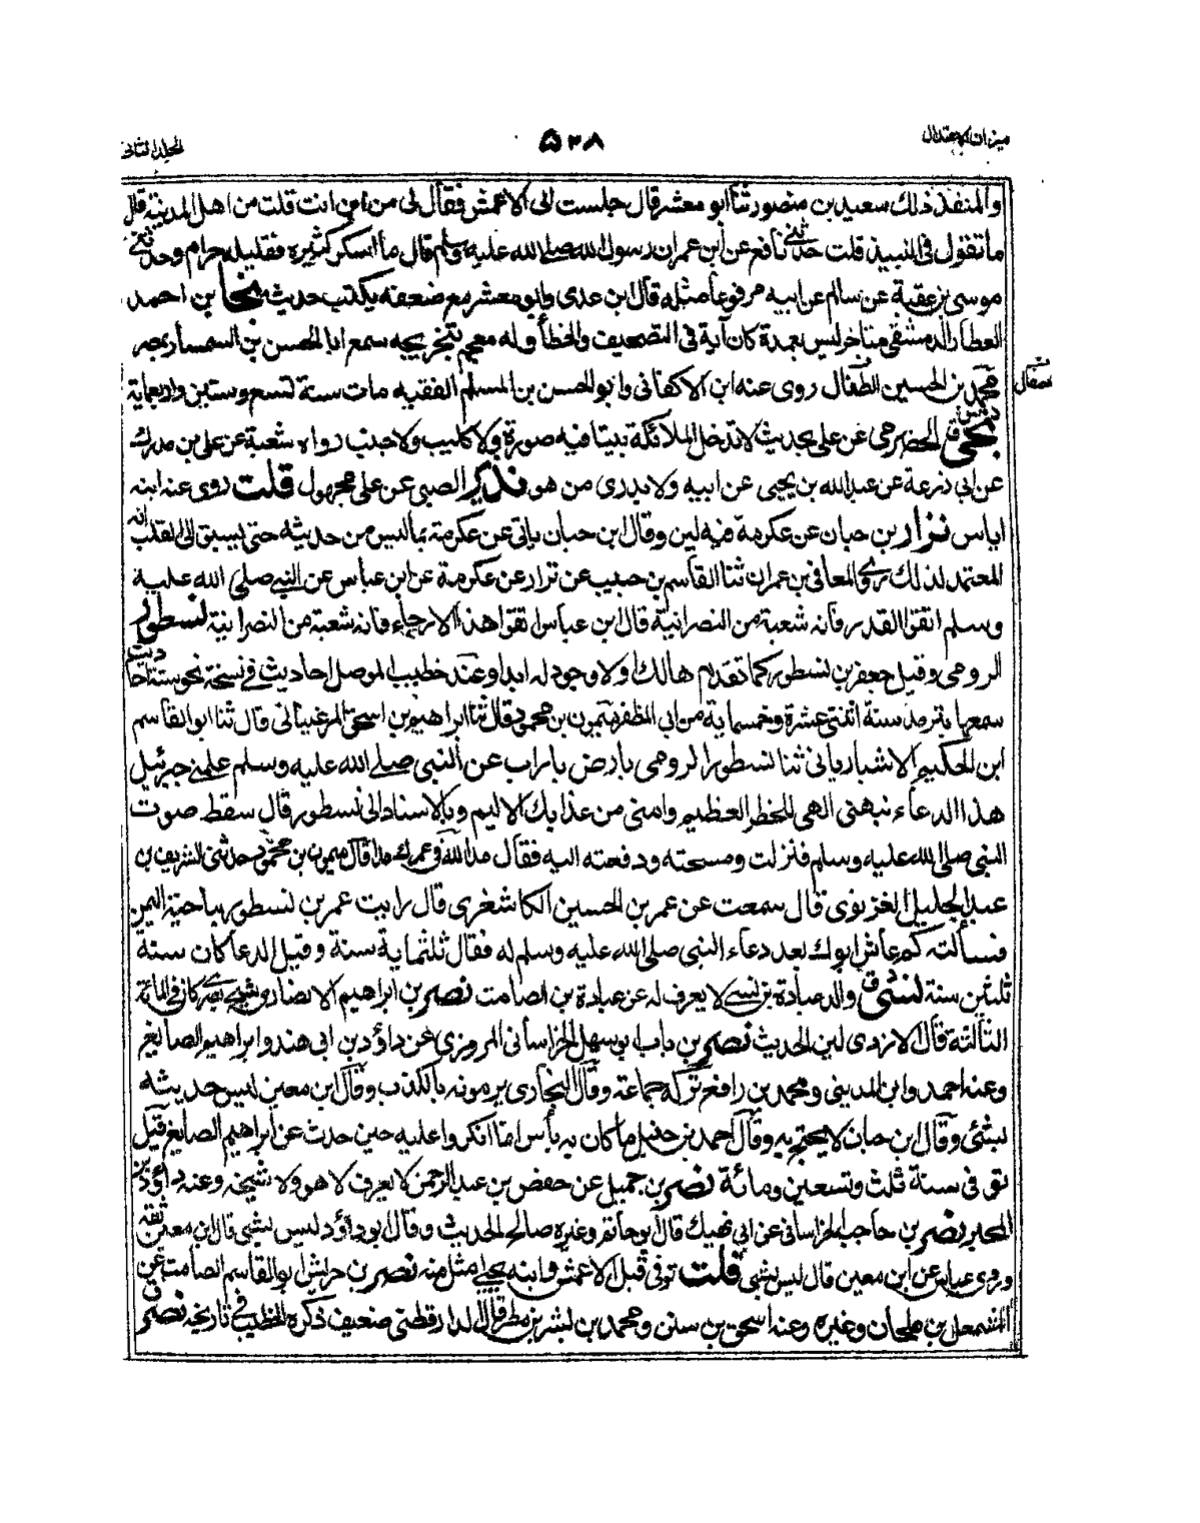 ميزان الاعتدال ٥٢٨ المجلد الثانى
والمنفذ ذلك سعيد بن منصور ثنا ابو معشر قال جلست الى الاعمش فقال لى من اين انت قلت من اهل المدينة قال
ما تقول فى النبيذ قلت حدثنى نافع عن ابن عمران رسول الله صلى الله عليه وسلم قال ما اسكر كثيره فقليله حرام وحدثنى
موسى بن عقبة عن سالم عن ابيه مرفوعا مثله قال ابن عدى وابو معشر مع ضعفه يكتب حديثه نجا بن احمد
العطار الدمشقى متاخر ليس بعمدة كان آية فى التصحيف والخطأ وله معجم بتخريجه سمع ابا الحسن بن السمسار بمصر
محمد بن الحسين الطفال روى عنه ابن الاكفانى وابو الحسن بن المسلم الفقيه مات سنة تسع وستين واربعماية
نجى الحضرمى عن على بحديث لا تدخل الملائكة بيتا فيه صورة ولا كلب ولا جنب رواه شعبة عن على بن مدرك
عن ابى زرعة عن عبد الله بن يحيى عن ابيه ولا يدرى من هو نذير الضبى عن على مجهول قلت روى عنه ابنه
اياس نزار بن حبان عن عكرمة فيه لين وقال ابن حبان ياتى عن عكرمة بما ليس من حديثه حتى يسبق الى القلب انه
المعتمد لذلك روى المعافى بن عمران ثنا القاسم بن حبيب عن نزار عن عكرمة عن ابن عباس عن النبى صلى الله عليه
وسلم اتقوا القدر فانه شعبة من النصرانية قال ابن عباس اتقوا هذا الارجاء فانه شعبة من النصرانية نسطور
الرومى وقيل جعفر بن نسطور كما تقدم هالك او لا وجود له ابدا وعند خطيب الموصل احاديث فى نسخة نحو ستة احاديث
سمعها بترمذ سنة اثنتى عشرة وخمسماية من ابى المظفر ميمون بن محمود قال ثنا ابراهيم بن اسحق المرغينانى قال ثنا ابو القاسم
ابن الحكيم الانباريانى ثنا نسطور الرومى بارض باراب عن النبى صلى الله عليه وسلم علمنى جبرئيل
هذا الدعاء نبهنى الهى للخطر العظيم وامنى من عذابك الاليم وبالاسناد الى نسطور قال سقط صوت
النبى صلى الله عليه وسلم فنزلت ومسحته ودفعته اليه فقال مد الله فى عمرك مدا قال ميمون بن محمود حدثنى الشريف بن
عبد الجليل الغزنوى قال سمعت عن عمر بن الحسين الكاشغرى قال رايت عمر بن نسطور بناحية اليمن
فسألته كم عاش ابوك بعد دعاء النبى صلى الله عليه وسلم له فقال ثلثماية سنة وقبل الدعا كان سنة
ثلثين سنة نسى ق والد عبادة بن نسى لا يعرف له عن عبادة بن الصامت نصر بن ابراهيم الانصارى شيخ بصرى كان فى المائة
الثالثة قال الازدى لين الحديث نصر بن باب ابو سهل الخراسانى المروزى عن داؤد بن ابى هند وابراهيم الصايغ
وعنه احمد وابن المدينى ومحمد بن رافع تركه جماعة وقال البخارى يرمونه بالكذب وقال ابن معين ليس حديثه
بشئ وقال ابن حبان لا يحتج به وقال احمد بن حنبل ما كان به بأس انما انكروا عليه حين حدث عن ابراهيم الصايغ قيل
توفى سنة ثلث وتسعين ومائة نصر بن جميل عن حفص بن عبد الرحمن لا يعرف لا هو ولا شيخه وعنه داؤد بن
المحبر نصر بن حاجب الخراسانى عن ابى نهيك قال ابو حاتم وغيره صالح الحديث وقال ابو داؤد ليس بشى قال ابن معين ثقة
وروى عباس عن ابن معين قال ليس بشى قلت توفى قبل الاعمش وابنه يحيى امثل منه نصر بن حريش ابو القاسم الصامت عن
المشمعل بن ملحان وغيره وعنه اسحق بن سنين ومحمد بن بشر بن مطر قال الدارقطنى ضعيف ذكره الخطيب فى تاريخه نصر